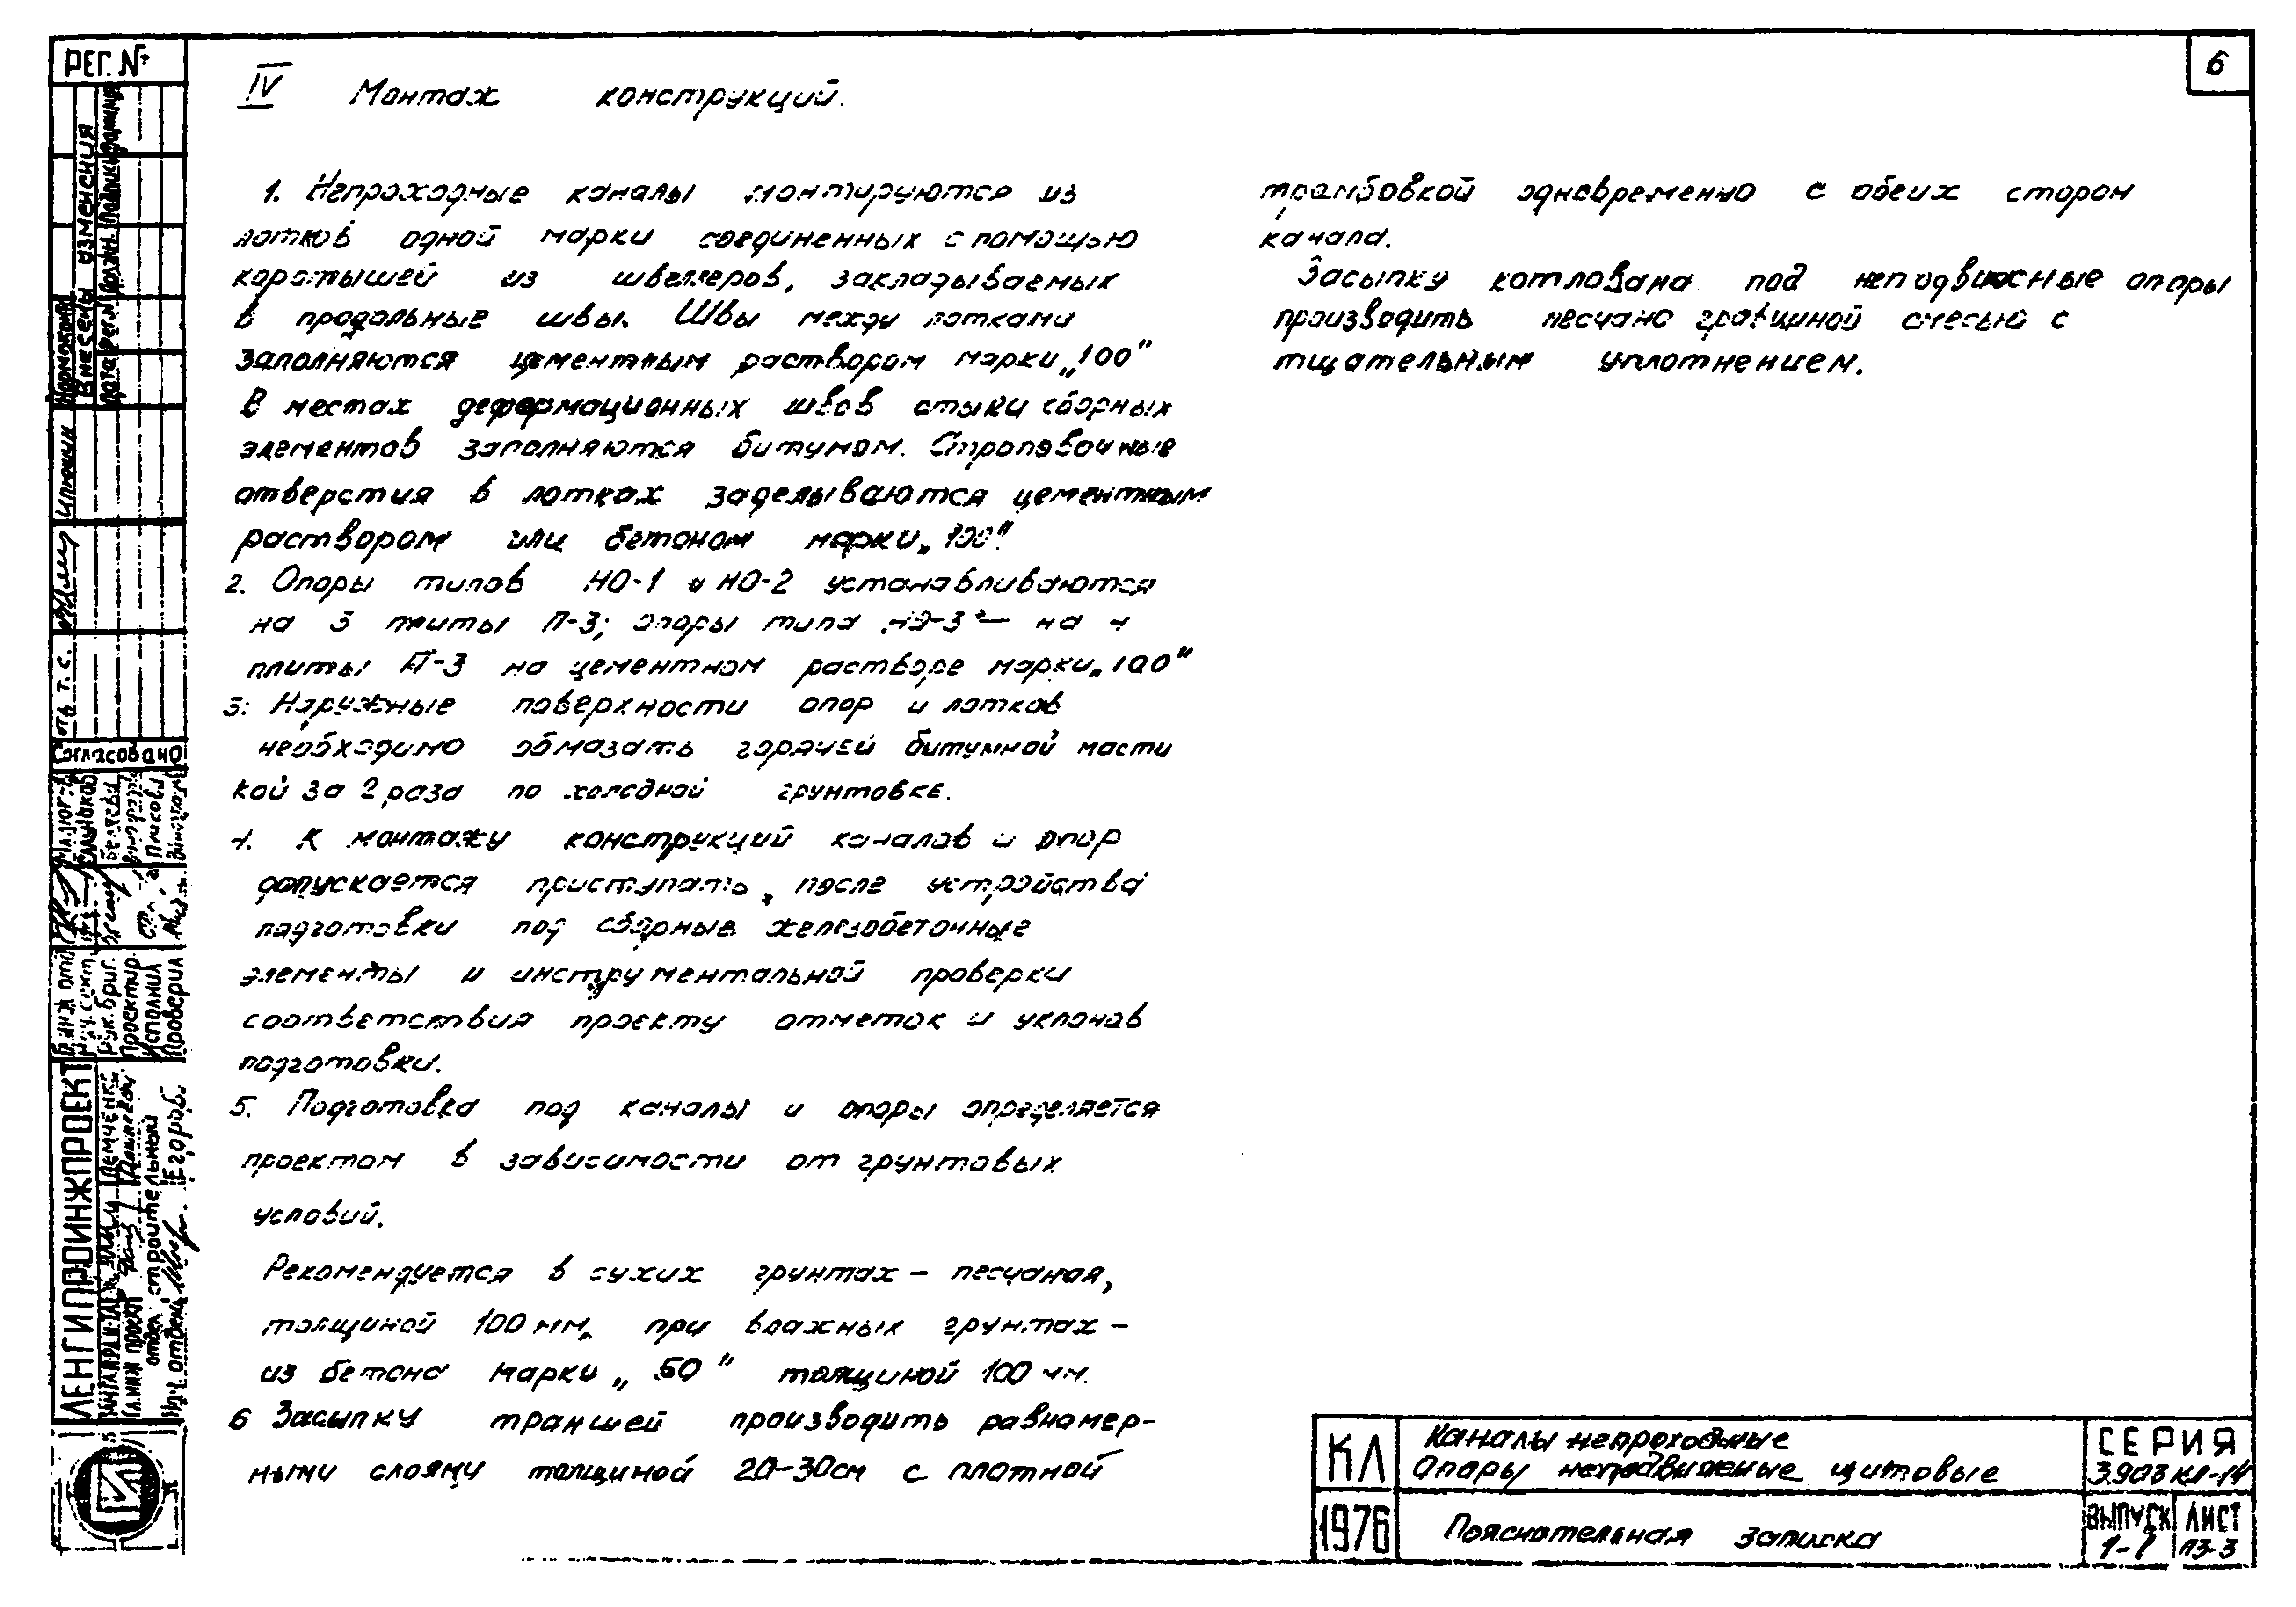 РЕГ. №
6
IV Монтаж конструкций.
1. Непроходные каналы монтируются из
лотков одной марки соединенных с помощью
коротышей из швеллеров, закладываемых
в продольные швы. Швы между лотками
заполняются цементным раствором марки „100"
В местах деформационных швов стыки сборных
элементов заполняются битумом. Строповочные
отверстия в лотках заделываются цементным
раствором или бетоном марки „100".
2. Опоры типов НО-1 и НО-2 устанавливаются
на 3 плиты П-3; опоры типа НО-3 — на 4
плиты П-3 на цементном растворе марки „100"
3. Наружные поверхности опор и лотков
необходимо обмазать горячей битумной масти
кой за 2 раза по холодной грунтовке.
4. К монтажу конструкций каналов и опор
допускается приступать, после устройства
подготовки под сборные железобетонные
элементы и инструментальной проверки
соответствия проекту отметок и уклонов
подготовки.
5. Подготовка под каналы и опоры определяется
проектом в зависимости от грунтовых
условий.
Рекомендуется в сухих грунтах – песчаная,
толщиной 100 мм, при влажных грунтах –
из бетона марки „50" толщиной 100 мм.
6 Засыпку траншей производить равномер-
ными слоями толщиной 20-30см с плотной
трамбовкой одновременно с обеих сторон
канала.
Засыпку котлована под неподвижные опоры
производить песчано гравийной смесью с
тщательным уплотнением.
Внесены изменения
Дата Рег.№ Должн. Подпись Фамилия
Нормоконт
Согласовано
Нач. сект.
Рук. бриг.
Проектир.
Исполнил
Проверил
ЛЕНГИПРОИНЖПРОЕКТ
Гл. инж проект
отдел строительный
Нач. отдела Егоров
КЛ
Каналы непроходные
Опоры неподвижные щитовые
СЕРИЯ
3.903 КЛ-14
1976
Пояснательная записка
ВЫПУСК
1-1
ЛИСТ
ПЗ-3